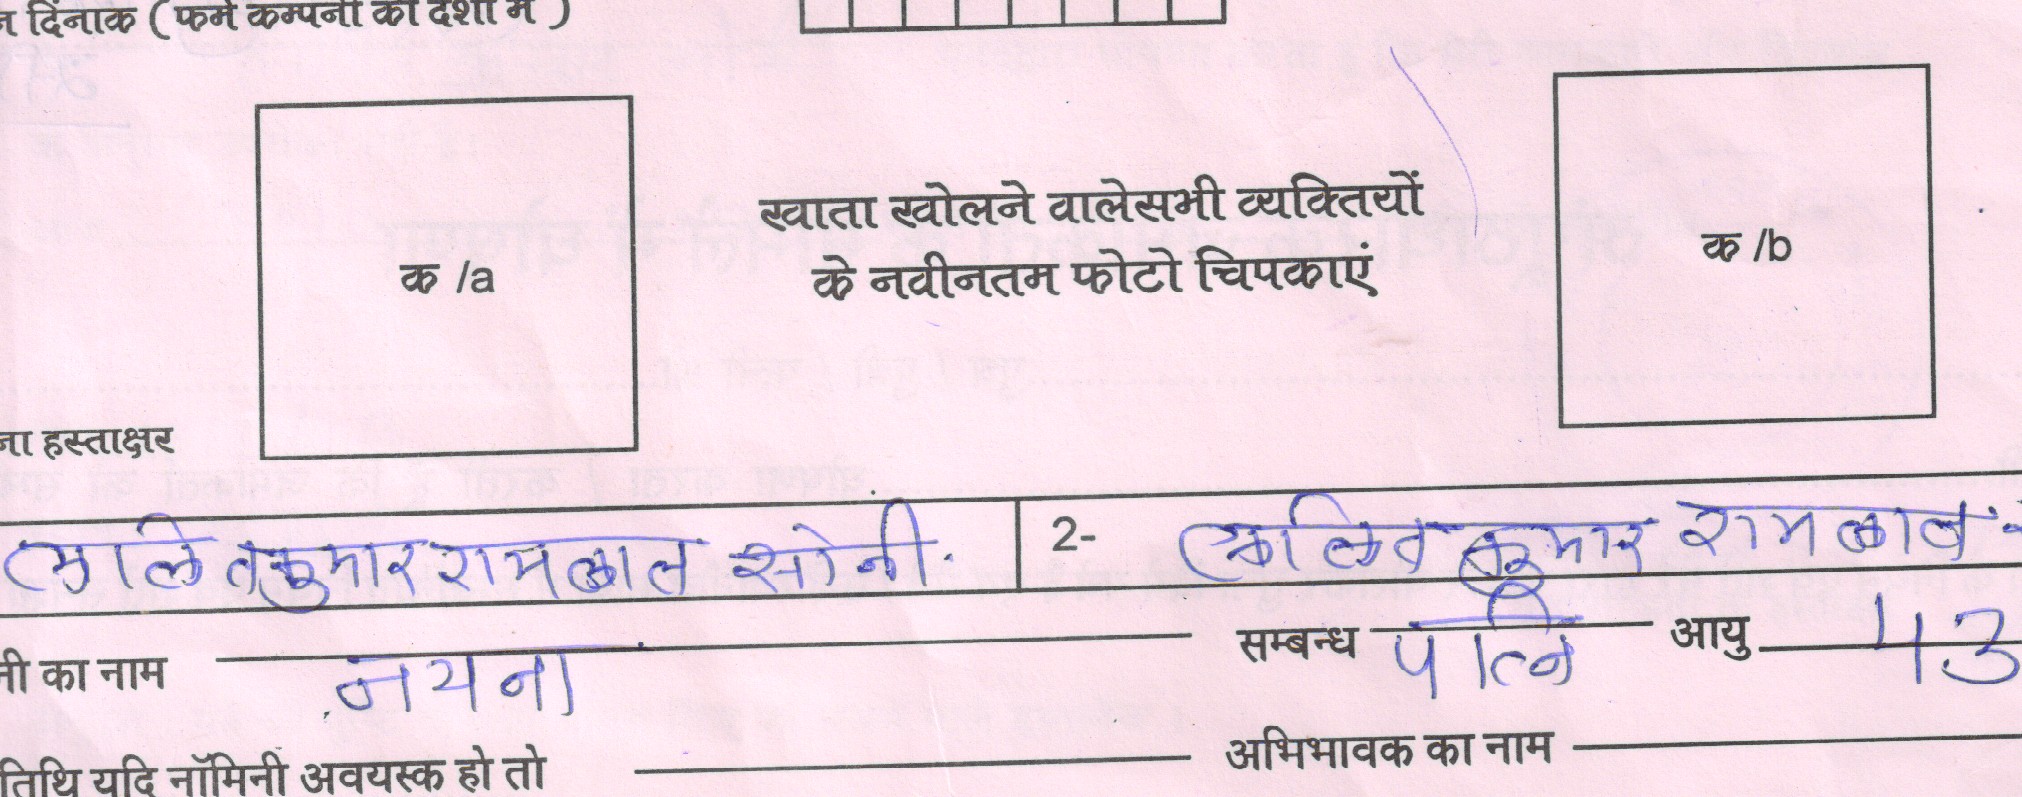 दिंनाक ( फर्म कम्पनी की दशा में )
क /a
खाता खोलने वालेसभी व्यक्तियों
के नवीनतम फोटो चिपकाएं
क /b
हस्ताक्षर
ललितकुमार रामलाल सोनी. 2- ललित कुमार रामलाल
का नाम नयना सम्बन्ध पत्नि आयु 43
तिथि यदि नॉमिनी अवयस्क हो तो अभिभावक का नाम